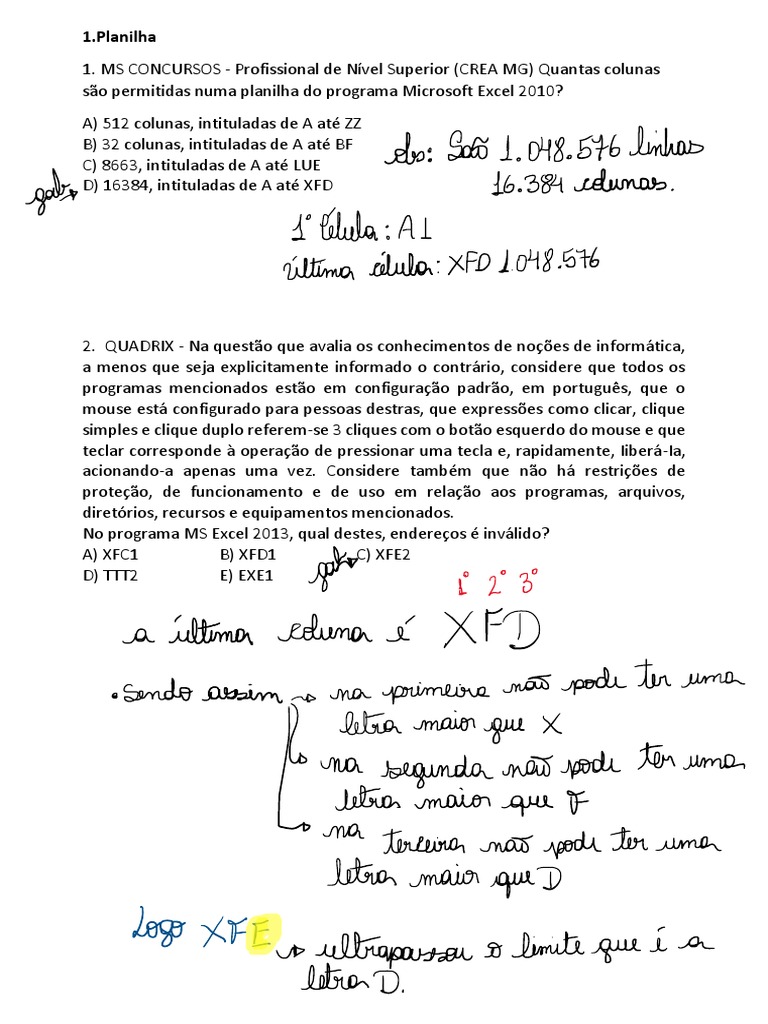 1.Planilha
1. MS CONCURSOS - Profissional de Nível Superior (CREA MG) Quantas colunas
são permitidas numa planilha do programa Microsoft Excel 2010?
A) 512 colunas, intituladas de A até ZZ
B) 32 colunas, intituladas de A até BF
C) 8663, intituladas de A até LUE
D) 16384, intituladas de A até XFD
gab
obs: São 1.048.576 linhas
16.384 colunas.
1° Célula: A1
Última célula: XFD 1.048.576
2. QUADRIX - Na questão que avalia os conhecimentos de noções de informática,
a menos que seja explicitamente informado o contrário, considere que todos os
programas mencionados estão em configuração padrão, em português, que o
mouse está configurado para pessoas destras, que expressões como clicar, clique
simples e clique duplo referem-se 3 cliques com o botão esquerdo do mouse e que
teclar corresponde à operação de pressionar uma tecla e, rapidamente, liberá-la,
acionando-a apenas uma vez. Considere também que não há restrições de
proteção, de funcionamento e de uso em relação aos programas, arquivos,
diretórios, recursos e equipamentos mencionados.
No programa MS Excel 2013, qual destes, endereços é inválido?
A) XFC1 B) XFD1 gab C) XFE2
D) TTT2 E) EXE1
1° 2° 3°
a última coluna é XFD
• Sendo assim → na primeira não pode ter uma
letra maior que X
→ na segunda não pode ter uma
letra maior que F
→ na terceira não pode ter uma
letra maior que D
Logo XFE → ultrapassou o limite que é a
letra D.